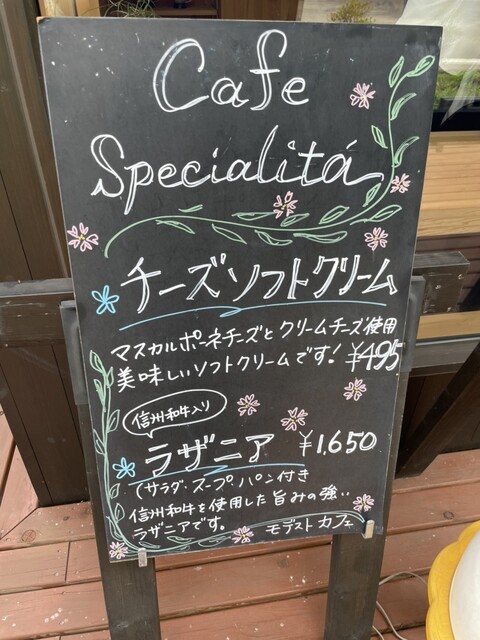 Cafe
Specialitá
チーズソフトクリーム
マスカルポーネチーズとクリームチーズ使用
美味しいソフトクリームです! ¥495
信州和牛入り
ラザニア ¥1,650
(サラダ・スープ、パン付き
信州和牛を使用した旨みの強い
ラザニアです。
モデスト カフェ